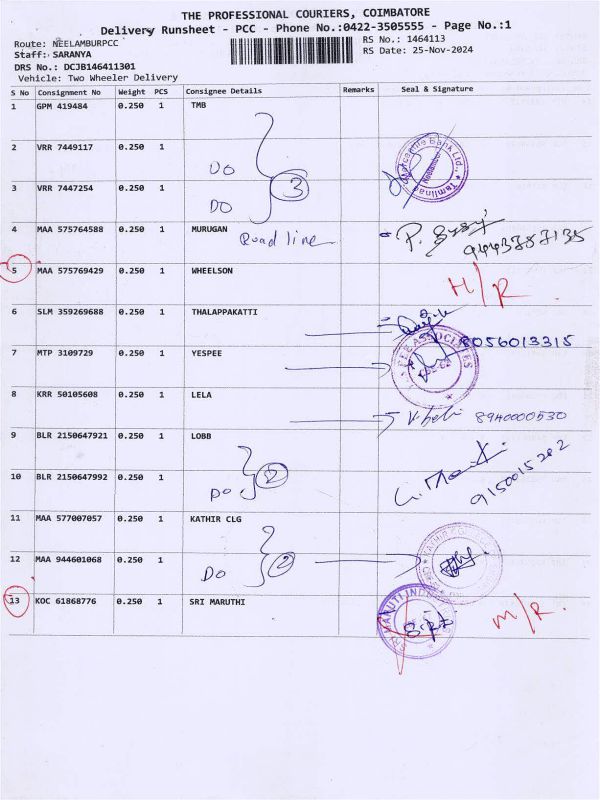 THE PROFESSIONAL COURIERS, COIMBATORE
Delivery Runsheet - PCC - Phone No.:0422-3505555 - Page No.:1
Route: NEELAMBURPCC
RS No.: 1464113
Staff: SARANYA
RS Date: 25-Nov-2024
DRS No.: DCJB146411301
Vehicle: Two Wheeler Delivery
S No Consignment No Weight PCS Consignee Details Remarks Seal & Signature
1 GPM 419484 0.250 1 TMB
2 VRR 7449117 0.250 1 DO
3 VRR 7447254 0.250 1 DO 3
4 MAA 575764588 0.250 1 MURUGAN Road line 9443787135
5 MAA 575769429 0.250 1 WHEELSON H/R
6 SLM 359269688 0.250 1 THALAPPAKATTI
7 MTP 3109729 0.250 1 YESPEE 8056013315
8 KRR 50105608 0.250 1 LELA 8940000530
9 BLR 2150647921 0.250 1 LOBB
10 BLR 2150647992 0.250 1 DO 2 9150015282
11 MAA 577007057 0.250 1 KATHIR CLG
12 MAA 944601068 0.250 1 DO 2
13 KOC 61868776 0.250 1 SRI MARUTHI M/R.